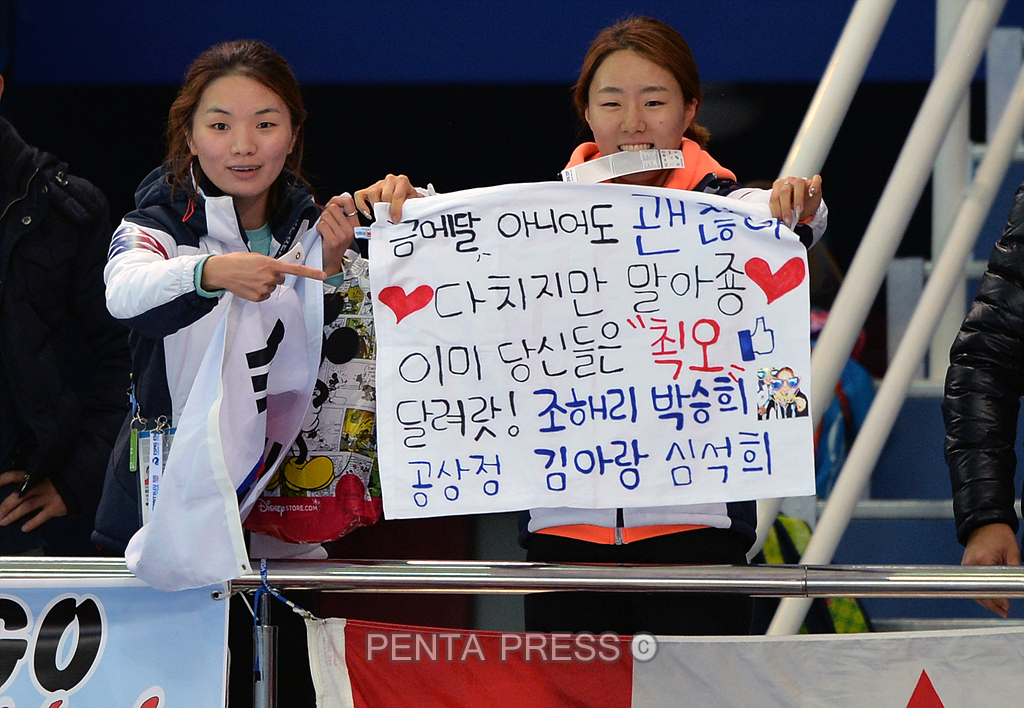 금메달 아니어도 괜찮아
다치지만 말아죵
이미 당신들은 "최오"
달려랏! 조해리 박승희
공상정 김아랑 심석희
DISNEYSTORE.COM
GO
PENTA PRESS ©